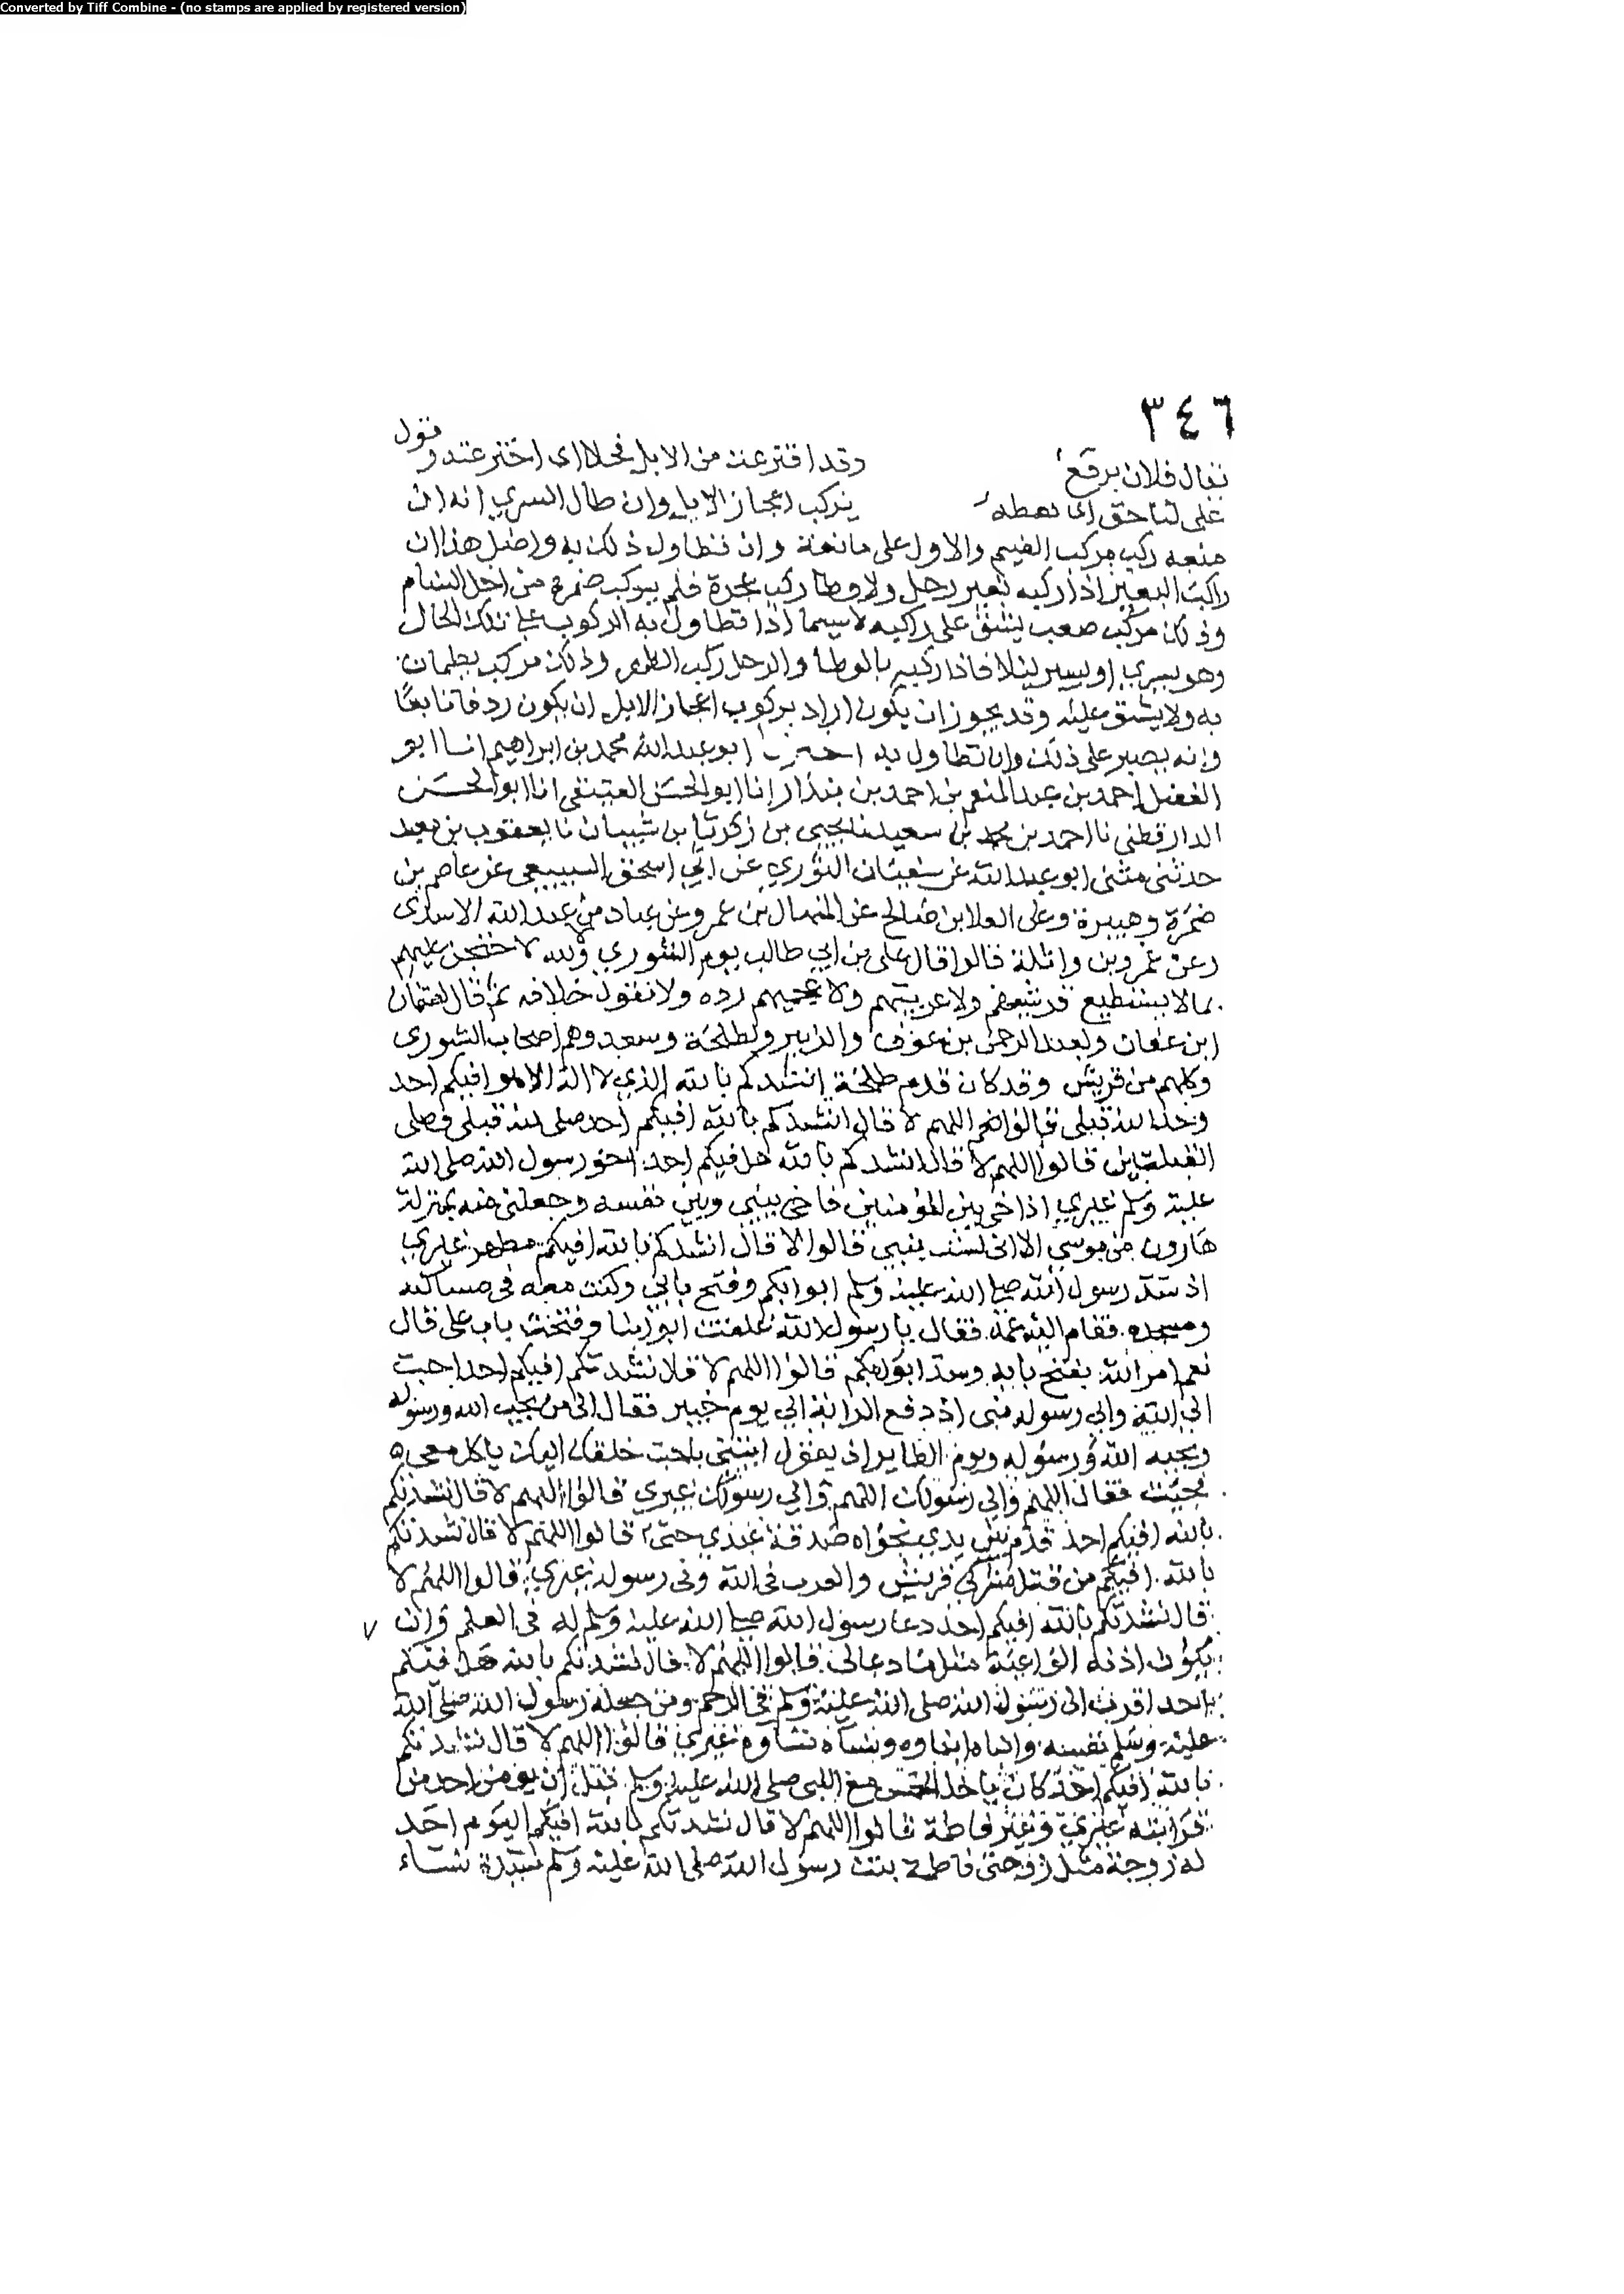 Converted by Tiff Combine - (no stamps are applied by registered version)
٣٤٦
يقال فلان يرقع وقد اقترعت من الابل فحلا اى اخترعته وقول
على لنا حق ان نعطه نركب اعجاز الابل وان طال السري انه ان
منعه ركب مركب الضيم والاول على مانعته وان تطاول ذلك به واصل هذا ان
راكب البعير اذا ركبه بغير رحل ولا وطا ركب عجزه فلم يركب ضمره من اجل السنام
وذلك مركب صعب يشق على راكبه لا سيما اذا تطاول به الركوب على تلك الحال
وهو يسري او يسير ليلا فاذا ركبه بالوطا والرحل ركب الظهر وذلك مركب يطمان
به ولا يشق عليه وقد يجوز ان يكون اراد بركوب اعجاز الابل ان يكون ردفا تابعا
وانه يصبر على ذلك وان تطاول به اخبرنا ابو عبد الله محمد بن ابراهيم انا ابو
الفضل احمد بن عبد المنعم بن احمد بن بندار انا ابو الحسن العتيقى انا ابو الحسن
الدارقطنى نا احمد بن محمد بن سعيد نا يحيى بن زكريا بن شيبان نا يعقوب بن معبد
حدثنى مثنى ابو عبد الله عن سفيان الثوري عن ابي اسحق السبيعى عن عاصم بن
ضمرة وهبيرة وعلى العلا بن صالح عن المنهال بن عمرو عن عباد بن عبد الله الاسدى
وعن عمرو بن واثلة قالوا قال على بن ابي طالب يوم الشوري والله لاحتجن عليهم
بمالا يستطيع قرشيهم ولا عربيهم ولا عجميهم رده ولا نقول خلافه ثم قال لعثمان
ابن عفان ولعبد الرحمن بن عوف والزبير ولطلحة وسعد وهم اصحاب الشورى
وكلهم من قريش وقد كان قدم طلحة انشدكم بالله الذي لا اله الا هو افيكم احد
وحد الله قبلى قالوا اللهم لا قال انشدكم بالله افيكم احد صلى لله قبلى فصلى
القبلتين قالوا اللهم لا قال انشدكم بالله هل فيكم احد اخو رسول الله صلى الله
عليه وسلم غيري اذ اخى بين المؤمنين فاخى بينى وبين نفسه وجعلنى منه بمنزلة
هارون من موسي الا انى لست بنبي قالوا لا قال انشدكم بالله افيكم مطهر غيري
اذ سد رسول الله صلى الله عليه وسلم ابوابكم وفتح بابي وكنت معه فى مساكنه
ومسجده فقام اليه عمه فقال يا رسول الله غلقت ابوابنا وفتحت باب على قال
نعم امر الله بفتح بابه وسد ابوابكم قالوا اللهم لا قال نشدتكم افيكم احد احب
الى الله والي رسوله منى اذ دفع الراية الي يوم خيبر فقال الى من يحب الله ورسوله
ويحبه الله ورسوله ويوم الطاير اذ يقول ائتنى باحب خلقك اليك ياكل معى
فجئت فقال اللهم والي رسولك اللهم والي رسولك غيري قالوا اللهم لا قال نشدتكم
بالله افيكم احد قدم بين يدي نجواه صدقة غيري حتى قالوا اللهم لا قال نشدتكم
بالله افيكم من قتل مشركي قريش والعرب فى الله وفى رسوله غيري قالوا اللهم لا
قال نشدتكم بالله افيكم احد دعا رسول الله صلى الله عليه وسلم له فى العلم وان
يكون اذنه الواعية مثل ما دعا لى قالوا اللهم لا قال نشدتكم بالله هل فيكم
احد اقرب الى رسول الله صلى الله عليه وسلم فى الرحم ومن جعله رسول الله صلى الله
عليه وسلم نفسه وابناه ابناوه ونساه نساوه غيري قالوا اللهم لا قال نشدتكم
بالله افيكم احد كان ياخذ الخمس مع النبى صلى الله عليه وسلم قبل ان يومن احد من
قرابته غيري وغير فاطمة قالوا اللهم لا قال نشدتكم بالله افيكم اليوم احد
له زوجة مثل زوجتى فاطمة بنت رسول الله صلى الله عليه وسلم سيدة نساء